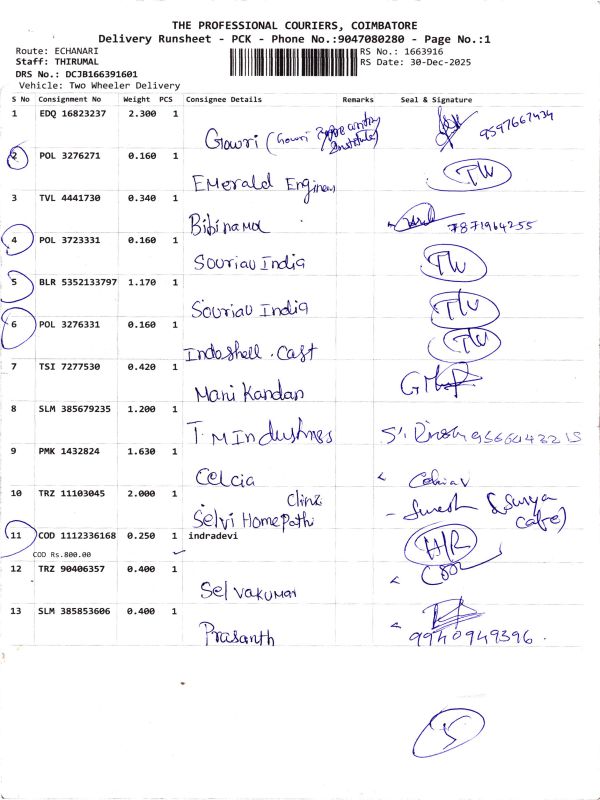 THE PROFESSIONAL COURIERS, COIMBATORE
Delivery Runsheet - PCK - Phone No.:9047080280 - Page No.:1
Route: ECHANARI
RS No.: 1663916
Staff: THIRUMAL
RS Date: 30-Dec-2025
DRS No.: DCJB166391601
Vehicle: Two Wheeler Delivery
S No Consignment No Weight PCS Consignee Details Remarks Seal & Signature
1 EDQ 16823237 2.300 1
Gowri (Gowri Institute) 9597667434
2 POL 3276271 0.160 1
Emerald Engineers TW
3 TVL 4441730 0.340 1
Bibinamol 7871964255
4 POL 3723331 0.160 1
Souriau India TW
5 BLR 5352133797 1.170 1
Souriau India TW
6 POL 3276331 0.160 1
Indoshell. Cast TW
7 TSI 7277530 0.420 1
Mani Kandan
8 SLM 385679235 1.200 1
T.M Industries
9 PMK 1432824 1.630 1
Celcia
10 TRZ 11103045 2.000 1
Selvi Homepathi Clinic - Suresh (Surya Cafe)
11 COD 1112336168 0.250 1 indradevi H/R
COD Rs.800.00
12 TRZ 90406357 0.400 1
Selvakumar
13 SLM 385853606 0.400 1
Prasanth 9940949396.
5